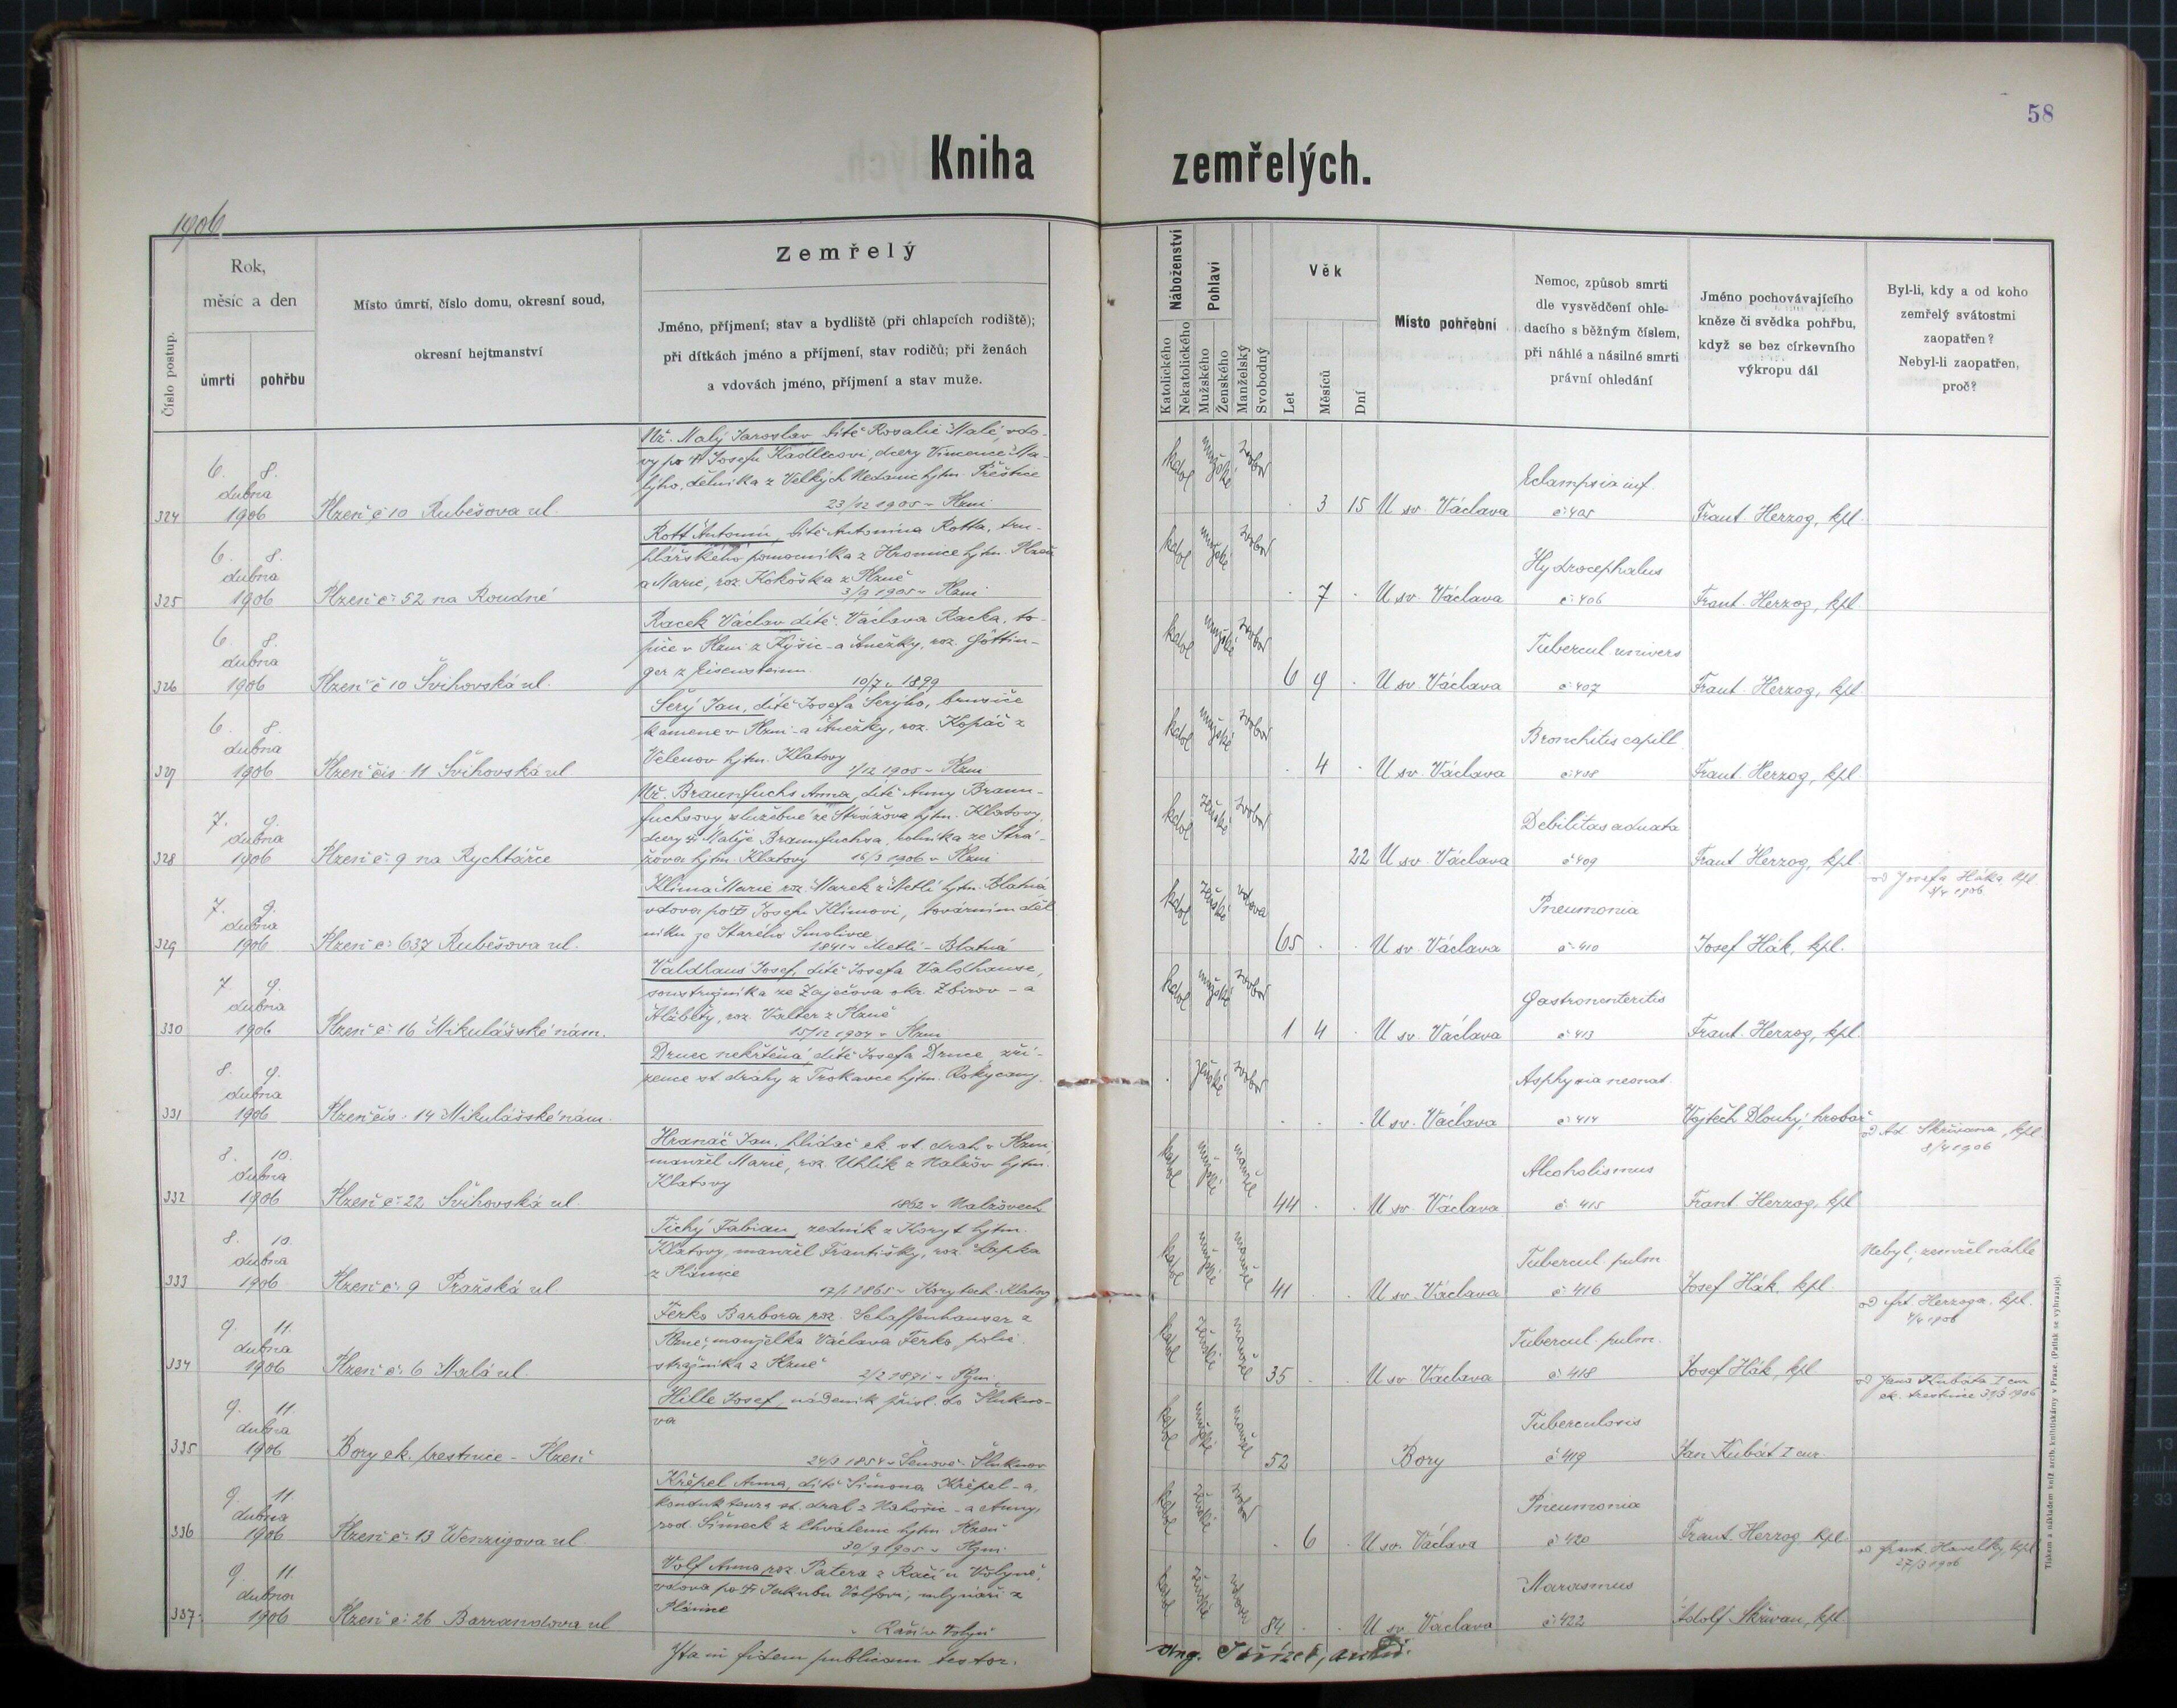 58
Kniha zemřelých.
1906
Číslo postup.
Rok,
měsíc a den
úmrtí
pohřbu
Místo úmrtí, číslo domu, okresní soud,
okresní hejtmanství
Zemřelý
Jméno, příjmení; stav a bydliště (při chlapcích rodiště);
při dítkách jméno a příjmení, stav rodičů; při ženách
a vdovách jméno, příjmení a stav muže.
Náboženství
Katolického
Nekatolického
Pohlaví
Mužského
Ženského
Manželský
Svobodný
Věk
Let
Měsíců
Dní
Místo pohřební
Nemoc, způsob smrti
dle vysvědčení ohle-
dacího s běžným číslem,
při náhlé a násilné smrti
právní ohledání
Jméno pochovávajícího
kněze či svědka pohřbu,
když se bez církevního
výkropu dál
Byl-li, kdy a od koho
zemřelý svátostmi
zaopatřen?
Nebyl-li zaopatřen,
proč?
324
6. 8.
dubna
1906
Plzeň č 10 Rubešova ul.
Nž. Malý Jaroslav dítě Rosalie Malé, vdo-
vy po † Josefu Kadlecovi, dcery Vincence Ma-
lýho, dělníka z Velkých hejtm. Přeštice
23/12 1905 v Plzni
katol mužské svobod
3 15 U sv. Václava
Eclampsia inf.
č. 405
Frant. Herzog, kpl.
325
6. 8.
dubna
1906
Plzeň č. 52 na Roudné
Rott Antonín, dítě Antonína Rotta, tru-
hlářského pomocníka z Hromnice hejtm. Plzeň
a Marie, roz. Kokoška z Plzně
3/9 1905 v Plzni
katol mužské svobod
7 U sv. Václava
Hydrocephalus
č. 406
Frant. Herzog, kpl
326
6. 8.
dubna
1906
Plzeň č 10 Švihovská ul.
Racek Václav dítě Václava Racka, to-
piče v Plzni z Kyšic - a Anežky, roz. Göttin-
ger z Eisensteinu
10/7 1899
katol mužské svobod
6 9 U sv. Václava
Tubercul. univers
č. 407
Frant. Herzog, kpl.
327
6. 8.
dubna
1906
Plzeň čís. 11 Švihovská ul
Šerý Jan, dítě Josefa Šerýho, brusiče
kamene v Plzni - a Anežky, roz. Kopáč z
Velenov hejtm. Klatovy
1/12 1905 v Plzni
katol mužské svobod
4 U sv. Václava
Bronchitis capill.
č. 408
Frant. Herzog, kpl
328
7. 9.
dubna
1906
Plzeň č. 9 na Rychtářce
Nž. Braunfuchs Anna, dítě Anny Braun-
fuchsovy služebné ze Strážova hejtm. Klatovy,
dcery Matěje Braunfuchsa, rolníka ze Strá-
žova hejtm. Klatovy 16/3 1906 v Plzni
katol ženské svobod
22 U sv. Václava
Debilitas adnata
č. 409
Frant Herzog, kpl.
329
7. 9.
dubna
1906
Plzeň č. 637 Rubešova ul.
Klíma Marie roz. Marek z Metlí hejtm. Blatná
vdova po † Josefu Klímovi, továrním děl-
níku ze Starého Smolivce
1841 v Metlí - Blatná
katol ženské vdova
65 U sv. Václava
Pneumonia
č. 410
Josef Hák, kpl.
od Josefa Háka, kpl.
1906
330
7. 9.
dubna
1906
Plzeň č. 16 Mikulášské nám.
Valdhaus Josef, dítě Josefa Valdhause,
soustružníka ze Zaječova okr. Zbirov - a
Alžběty, roz. Valter z Plzně
15/12 1904 v Plzni
katol mužské svobod
1 4 U sv. Václava
Gastroenteritis
č. 413
Frant. Herzog, kpl
331
8. 9.
dubna
1906
Plzeň čís. 14 Mikulášské nám.
Druec nekřtěná, dítě Josefa Druce, zří-
zence st. dráhy z Trokavce hejtm. Rokycany.
ženské svobod
U sv. Václava
Asphyxia neonat.
č. 414
Vojtěch Dlouhý, hrobař
332
8. 10.
dubna
1906
Plzeň č. 22 Švihovská ul.
Hranáč Jan, hlídač ck. st. drah v Plzni,
manžel Marie, roz. Uhlík z Nalžov hejtm.
Klatovy
1862 v Nalžovech
katol mužské manžel
44 U sv. Václava
Alcoholismus
č. 415
Frant. Herzog, kpl
od Ad. Skřivana, kpl.
8/4 1906
333
8. 10.
dubna
1906
Plzeň č. 9 Pražská ul
Tichý Fabian, zedník z Koryt hejtm.
Klatovy, manžel Františky, roz. Lapka
z Plánice
1865 v Korytech - Klatovy
katol mužské manžel
41 U sv. Václava
Tubercul. pulm.
č. 416
Josef Hák, kpl.
Nebyl; zemřel náhle
334
9. 11.
dubna
1906
Plzeň č. 6 Malá ul.
Ferko Barbora roz. Schaffenhauser z
Plzně, manželka Václava Ferko, polic.
strážníka z Plzně
2/2 1871 v Plzni
katol ženské
35 U sv. Václava
Tubercul. pulm.
č. 418
Josef Hák, kpl
od Frt. Herzoga, kpl.
1906
335
9. 11.
dubna
1906
Bory ck. trestnice - Plzeň
Hille Josef, nádeník přísl. do Šlukno-
va
24/3 1854 v Šenově - Šluknov
katol mužské
52 Bory
Tuberculosis
č 419
Jan Kubát I cur.
od Jana Kubáta I cur
ck. trestnice 30/3 1906
336
9. 11.
dubna
1906
Plzeň č. 13 Wenzigova ul.
Křépel Anna, dítě Šimona Křépel - a,
kondukteura st. drah z - a Anny,
rod. Šimeck z Chválenic hejtm. Plzeň
30/9 1905 v Plzni
katol ženské svobod
6 U sv. Václava
Pneumonia
č 420
Frant. Herzog kpl.
337.
9. 11
dubna
1906
Plzeň č. 26 Barrandova ul
Volf Anna roz. Patera z Račí u Volyně,
vdova po † Jakubu Volfovi, mlynáři z
Plánice
v Račí u Volyně
katol ženské vdova
84 U sv. Václava
Marasmus
č. 422
Adolf Skřivan, kpl
od Frant. Havelky, kpl
27/3 1906
Ita in fidem publicam testor.
Tiskem a nákladem kníž. arcib. knihtiskárny v Praze. (Patisk se vyhrazuje).